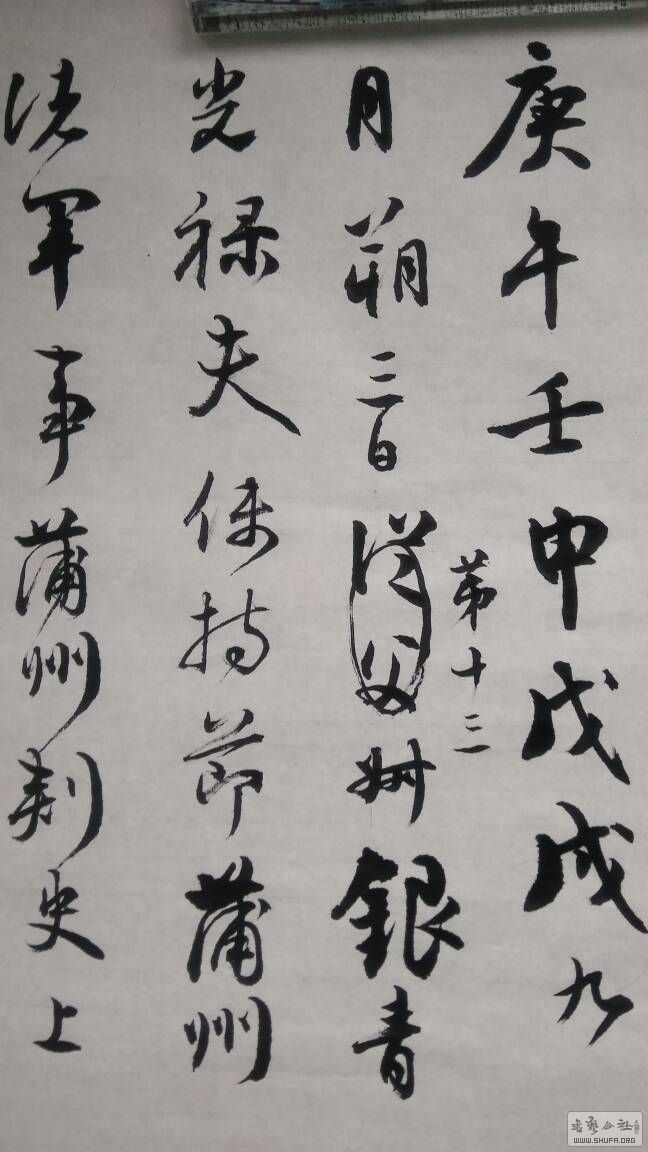 庚午壬申戊戌九
第十三
月朔三日從父叔銀青
光禄夫使持節蒲州
諸軍事蒲州刺史上
書藝公社
WWW.SHUFA.ORG